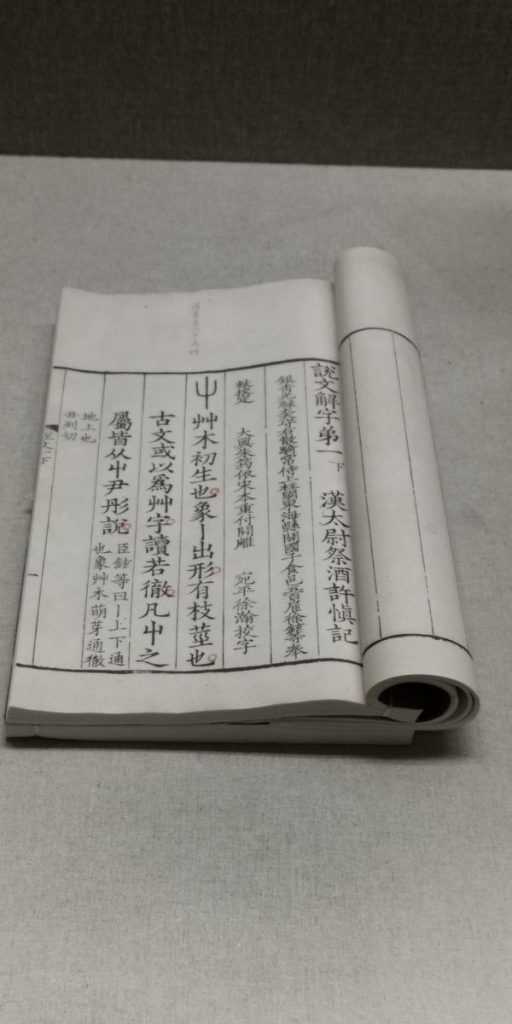 說文解字弟一 下 漢太尉祭酒許慎記
銀青光祿大夫守右散騎常侍上柱國東海縣開國子食邑五百戶徐鉉等奉
敕校定 大興朱筠依宋本重付開雕 宛平徐瀚校字
屮 艸木初生也象丨出形有枝莖也
古文或以爲艸字讀若徹凡屮之
屬皆从屮尹彤說 臣鉉等曰丨上下通
也象艸木萌芽通徹
地上也
丑列切
說文一下
一